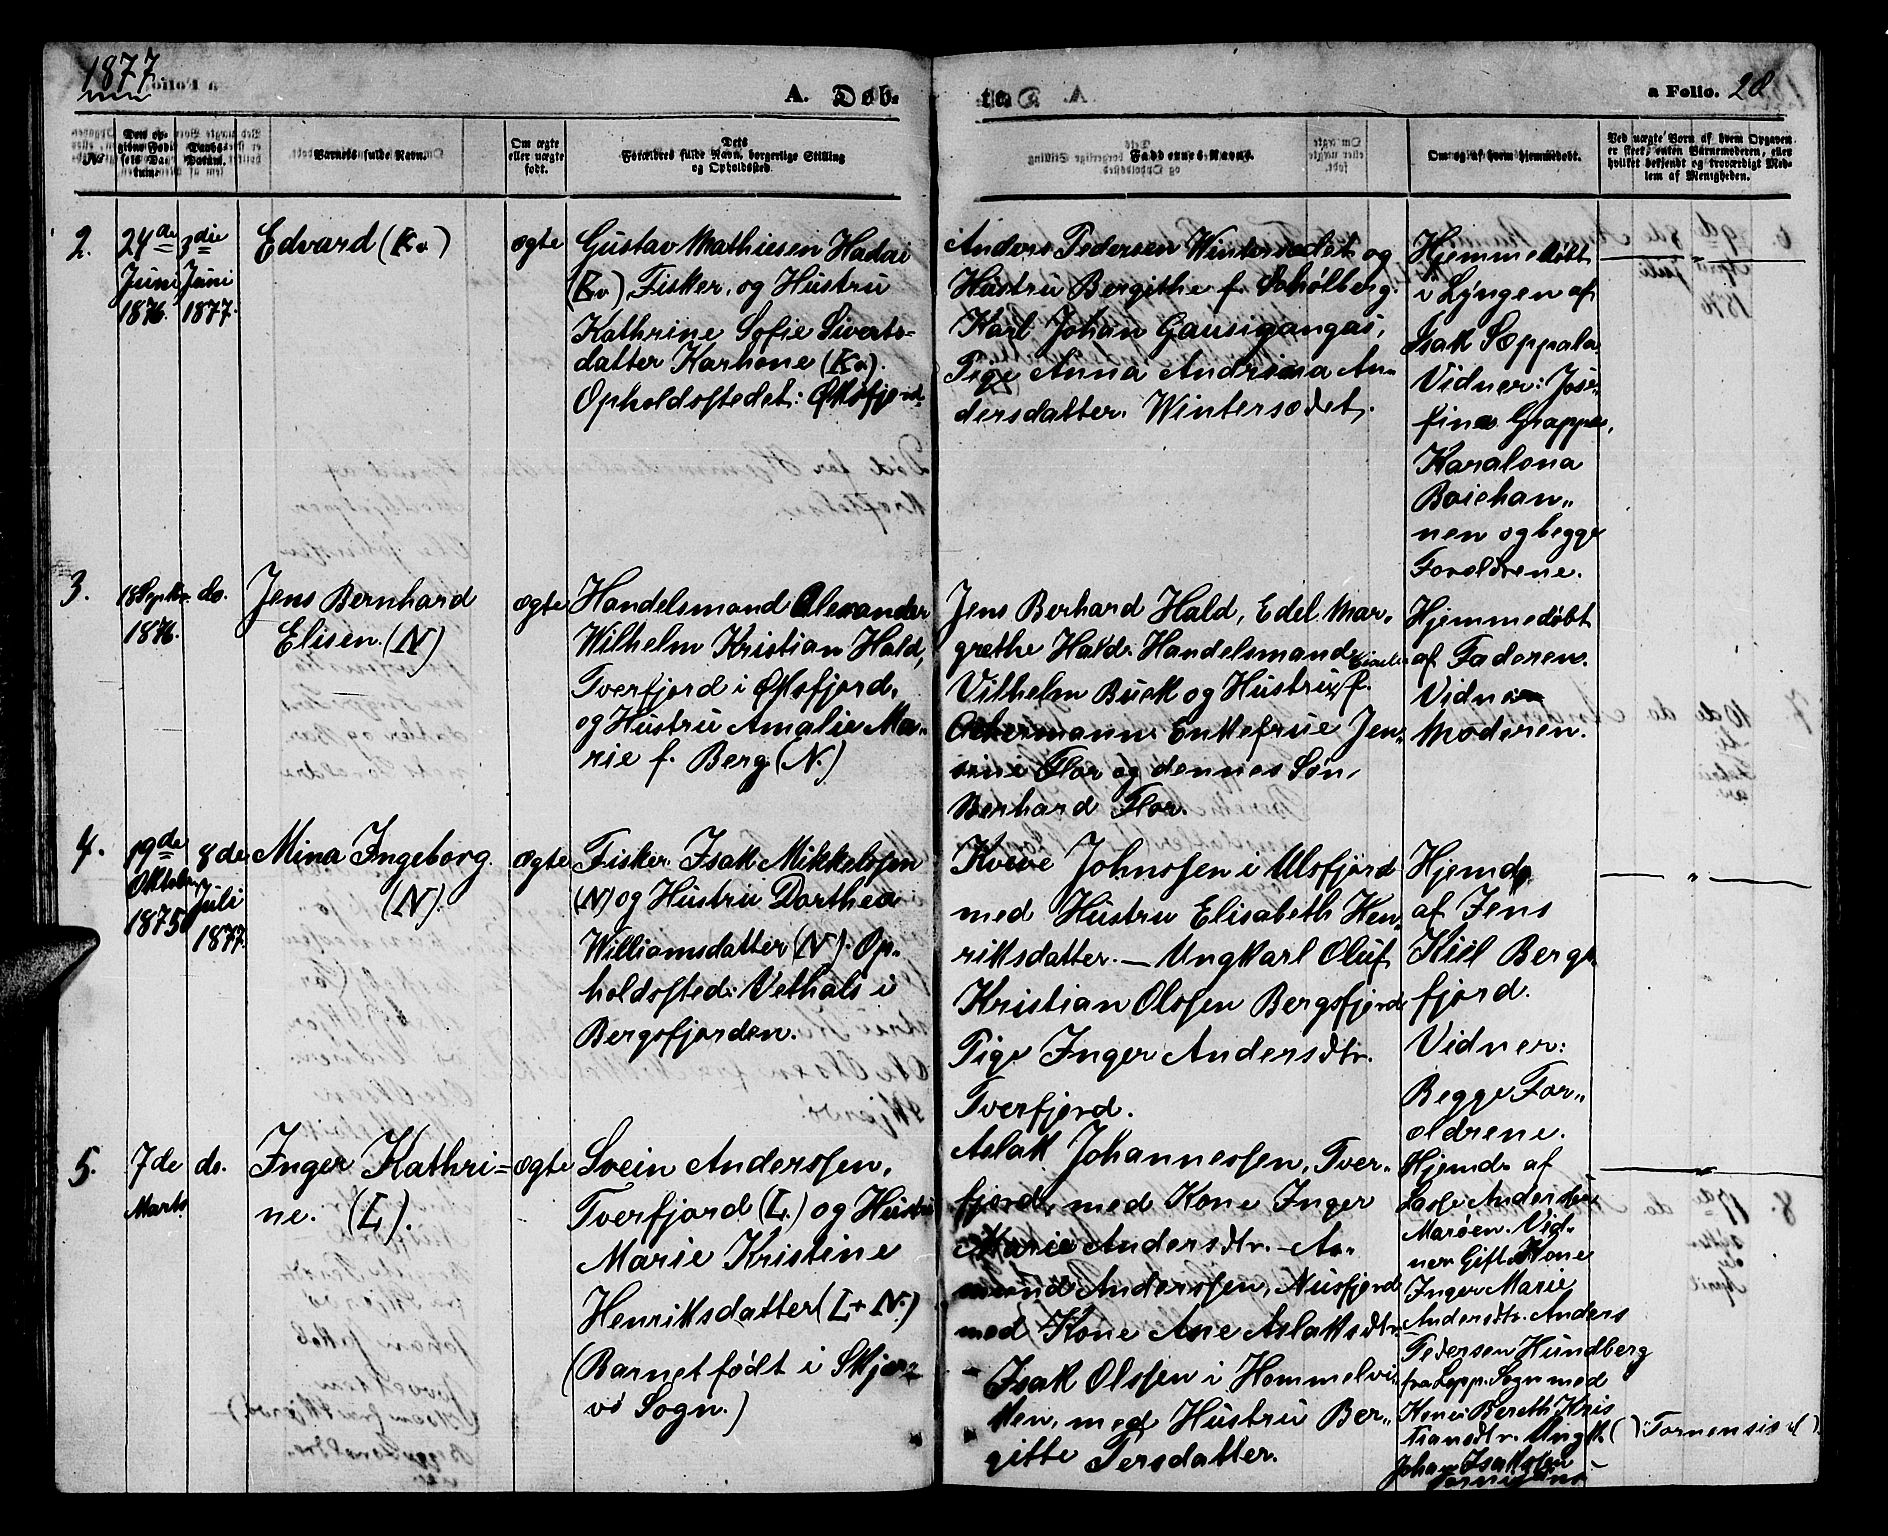 1877
A. Døb-
te.
a Folio. 28
No
Dets op-
givne Fød-
sels Da-
tum.
Daabs-
Datum.
Barnets fulde Navn.
Om ægte
eller uægte
født.
Dets
Forældres fulde Navn, borgerlige Stilling
og Opholdssted.
Faddernes Navne.
Om og af hvem hjemmedøbt.
Ved uægte Børn af hvem Opgaven
er skeet, enten Barnemoderen, eller
hvilket bekjendt og troværdigt Med-
lem af Menigheden.
2.
24de
Juni
1876.
3die
Juni
1877.
Edvard (Kv)
ægte
Gustav Mathiesen Hadai
(Kv) Fisker, og Hustru
Kathrine Sofie Siverts-
datter Karhone (Kv).
Opholdsstedet: Øksfjord.
Anders Pedersen Wintersædet og
Hustru Bergithe f. Schølberg.
Karl Johan Gausigangas,
Pige Anna Andrina An-
dersdatter. Wintersædet.
Hjemmedøbt
i Lyngen af
Isak Sæppala
Vidner: Jose-
fina Grappe,
Karalona
Boiehan-
nen og begge
Forældrene.
3.
18 Septbr.
1876.
do.
Jens Bernhard
Elisen. (N)
ægte
Handelsmand Alexander
Wilhelm Kristian Hald,
Tverfjord i Øksfjord.
og Hustru Amalie Ma-
rie f. Berg. (N.)
Jens Berhard Hald, Edel Mar-
grethe Hald. Handelsmand
Vilhelm Buck og Hustru f.
Ackermann. Enkefrue Jen-
sine Flor og dennes Søn,
Berhard Flor.
Hjemmedøbt
af Faderen.
Vidne
Moderen.
4.
19de
Oktober
1875
8de
Juli
1877.
Mina Ingeborg
(N).
ægte
Fisker Isak Mikkelssen
(N) og Hustru Dorthea
Williamsdatter (N). Op-
holdssted: Vethals i
Bergsfjorden.
Kvive Johnssen i Ulsfjord
med Hustru Elisabeth Hen-
riksdatter. — Ungkarl Oluf
Kristian Olssen Bergsfjord
Pige Inger Andersdtr.
Tverfjord.
Hjemd.
af Jens
Kiil Bergs-
fjord.
Vidner:
Begge For-
ældrene.
5.
7de
Marts
do.
Inger Kathri-
ne. (L).
ægte
Svein Anderssen,
Tverfjord (L.) og Hustru
Marie Kristine
Henriksdatter (L + N.)
(Barnet født i Skjer-
vø Sogn.)
Aslak Johannessen, Tver-
fjord, med Kone Inger
Marie Andersdtr. — Aa-
mund Anderssen, Nusfjord
med Kone Ane Aslaksdtr.
— Isak Olssen i Hommelvi-
ken, med Hustru Ber-
gitte Persdatter.
Hjemd. af
Lasse Anderssen
Marøen. Vid-
ner Gift Kone
Inger Marie
Andersdtr. Anders
Pedersen Hundberg
fra Lapp. Sogn med
Kone: Bereth Kris
tiansdtr. Ungk. ( ) "Tornensis"
Johan Isaksen